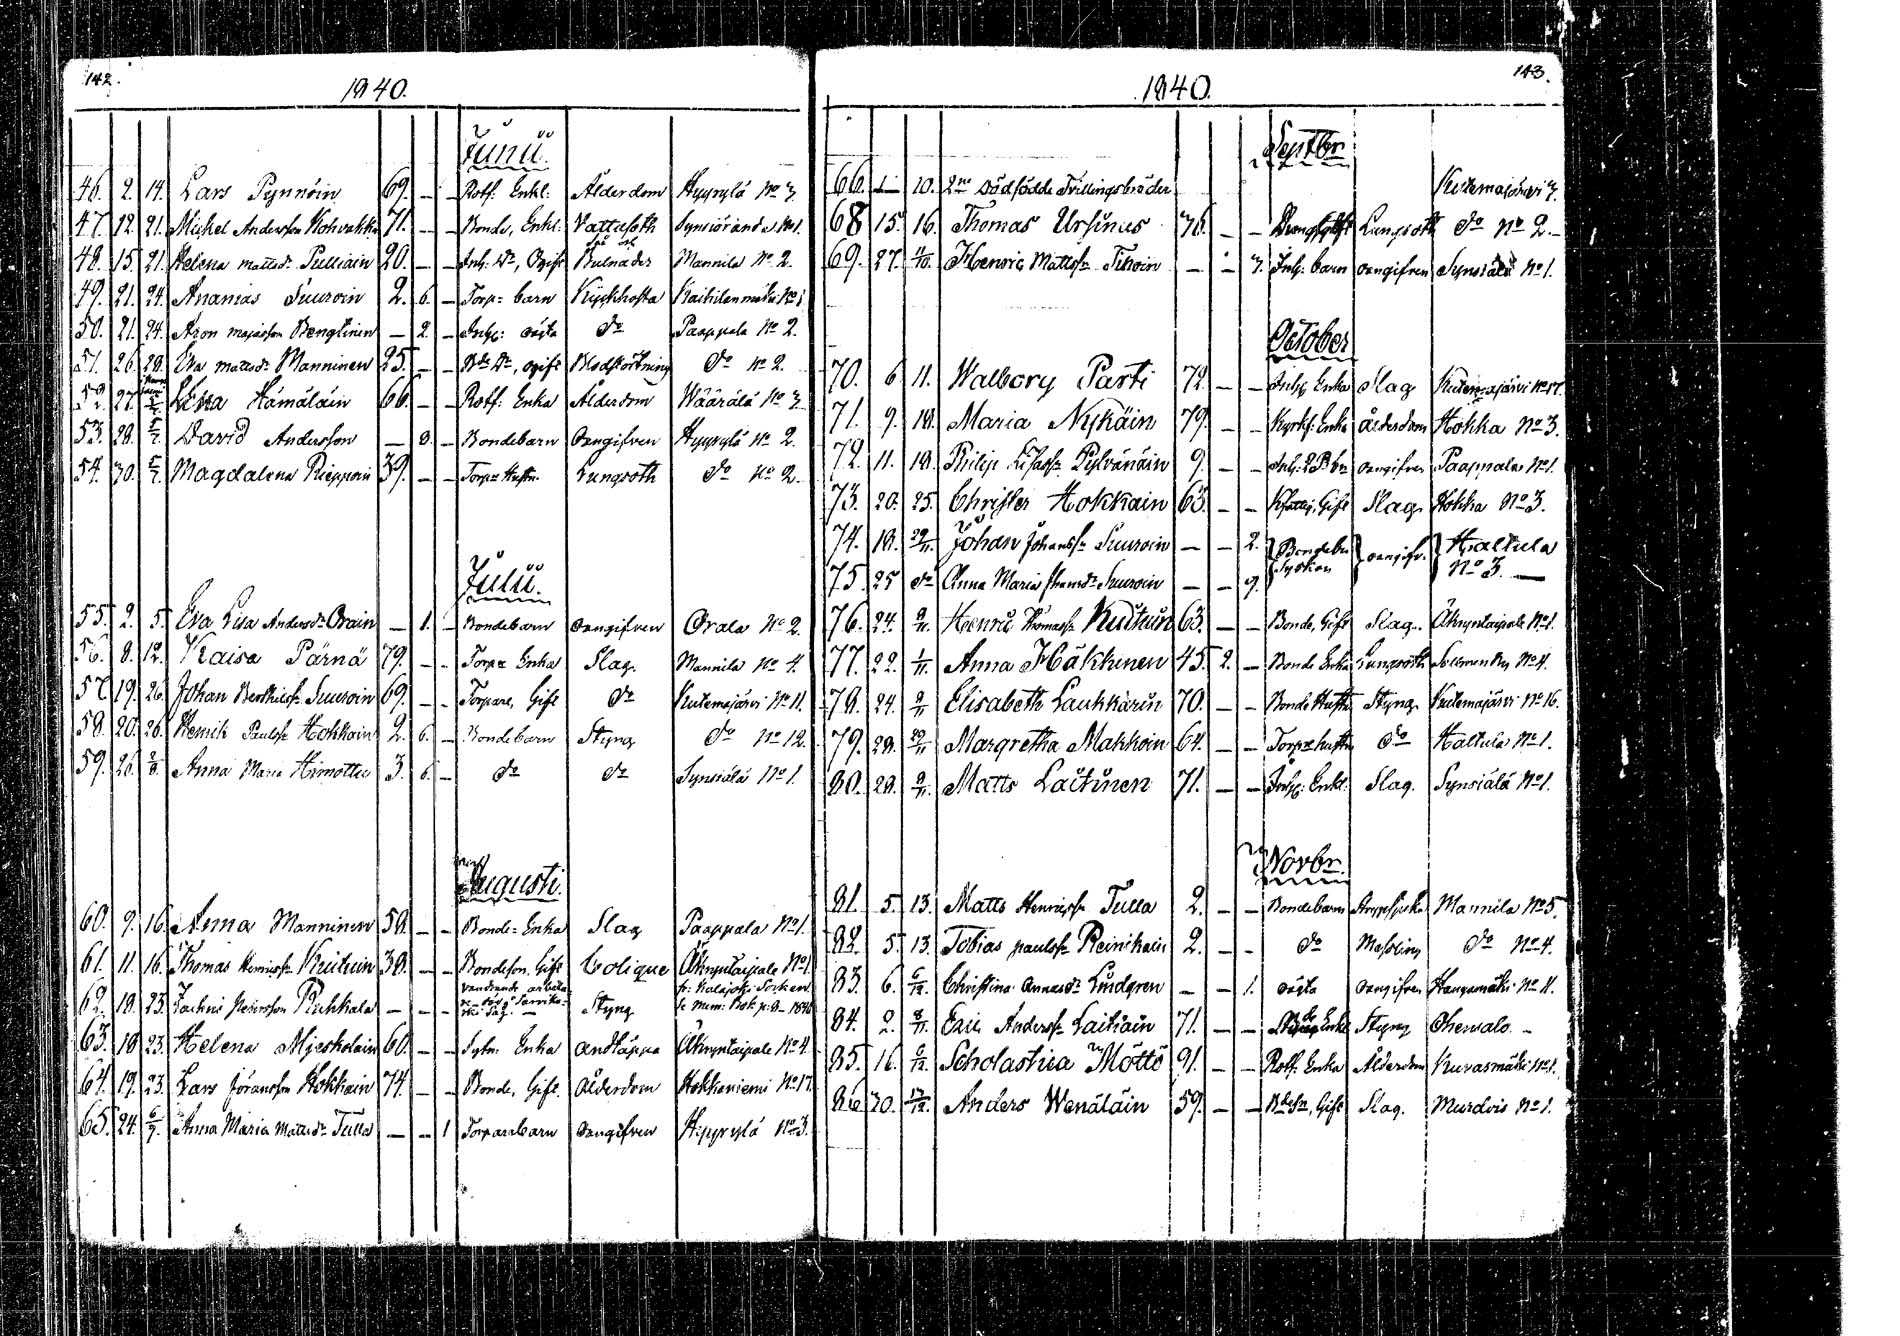 142.
1840.
Junii.
46. 2. 14. Lars Pynnöin 69. – – Rotf. Enkl: Ålderdom Hyyrylä No 7.
47. 12. 21. Michel Andersson Kohvakka 71. – – Bonde, Enkl. Vattusoth
48. 15. 21. Helena mattsdr Pulliain 20. – – Inh: Dr, Ogift Mannila No 2.
49. 21. 24. Ananias Suuroin 2. 6. – Torp= barn Kikhosta
50. 21. 24. Aron Bengtinen – 2. – Inhs: oägta do Paappala No 2.
51. 26. 28. Eva mattsdr Manninen 25. – – Bde Dr, ogift Blodstörtning do No 2.
52. 27. Lena Hämäläin 66. – – Rotf: Enka Ålderdom Wäärälä No 7
53. 28. 5/7. David Andersson – 8. – Bondebarn Oangifven Hyyrylä No 2.
54. 30. 5/7. Magdalena Rieppoin 39. – – Torpe Hustru. Lungsoth do No 2.
Julii.
55. 2. 5. Eva Lisa Andersdr Orain – 1. – Bondebarn Oangifven Orala No 2.
56. 8. 12. Kaisa Pärnä 79. – – Torpe Enka Slag. Mannila No 4.
57. 19. 26. Johan Suuroin 69. – – Torpare, Gift do Kutemajärvi No 11.
58. 20. 26. Henrik Paulss Hokkain 2. 6. – Bondebarn Styng do No 12.
59. 26. 2/8. Anna Maria Himottu 3. 6. – do do Synsiälä No 1.
Augusti.
60. 9. 16. Anna Manninen 58. – – Bonde= Enka Slag Paappala No 1.
61. 11. 16. Thomas Henrikss Kuituin 38. – – Bondeson, Gift Colique Äknyntaipale No 1.
62. 18. 23. Zachris Pehrsson Ruhkala – – – vandrande Styng fr: Kalajoki Socken
63. 18 23. Helena Mjeskolain 60. – – Sytn. Enka andtäppa Äknyntaipale No 4.
64. 19. 23. Lars Göransson Hokkain 74. – – Bonde, Gift. ålderdom Hokkaniemi No 17.
65. 24. 6/9. Anna Maria Mattsdr Tulla – – 1 Torparebarn Oangifven Hyyrylä No 3.
143.
1840.
Septbr
66. 1 10. 2ne dödfödde Tvillingsbröder Kutemajärvi 7.
68 15. 16. Thomas Ursinus 76. – – Lungsoth do No 2. –
69. 27. 11/10. Henric Mattss Tihoin – – 7. Inh: barn oangifven Synsiälä No 1.
October
70. 6 11. Walborg Parti 72. – – Inhs Enka Slag Kutemajärvi No 17.
71. 9. 18. Maria Nykäin 79. – – Kyrkf: Enka Ålderdom Hokka No 3.
72. 11. 18. Philip Pylvänäin 9. – – oangifven Paappala No 1.
73. 20. 25. Christer Hokkain 63. – – Kfattig, Gift Slag. Hokka No 3.
74. 18. 29/11. Johan Johanss Suuroin – – 2. Bondebn Syskon oangifv. Haltula No 3. –
75. 25 do Anna Maria Suuroin – – 9.
76. 24. 9/11. Henric Thomass Kuituin 63. – – Bonde, Gift Slag. Äknyntaipale No 1.
77. 22. 1/11. Anna Häkkinen 45. 2. – Bonde Enka Lungsoth No 4.
78. 24. 9/11 Elisabeth Laukkarin 70. – – Bonde Hustr Styng. Kutemajärvi No 16.
79. 28. 29/11 Margretha Makkoin 64. – – Torpe hustru do Haltula No 1.
80. 28. 9/11. Matts Laitinen 71. – – Inhs: Enkl: Slag. Synsiälä No 1.
Novbr
81. 5. 13. Matts Henricss Tulla 2. – – Bondebarn Mannila No 5.
82. 5. 13. Tobias paulss Reinikain 2. – – do Messling do No 4.
83. 6. 6/12. Christina Annasdr Lindgren – – 1. oägta oangifven Hangasmäki No 11.
84. 2. 8/11. Eric Anderss Laitiain 71. – – Enkl Styng –
85. 16. 6/12. Scholastica Möttö 91. – – Rotf. Enka Ålderdom Kuvasmäki No 1.
86 30. 17/12. Anders Wenäläin 59. – – Bdeson, Gift Slag. Murdvis No 1.